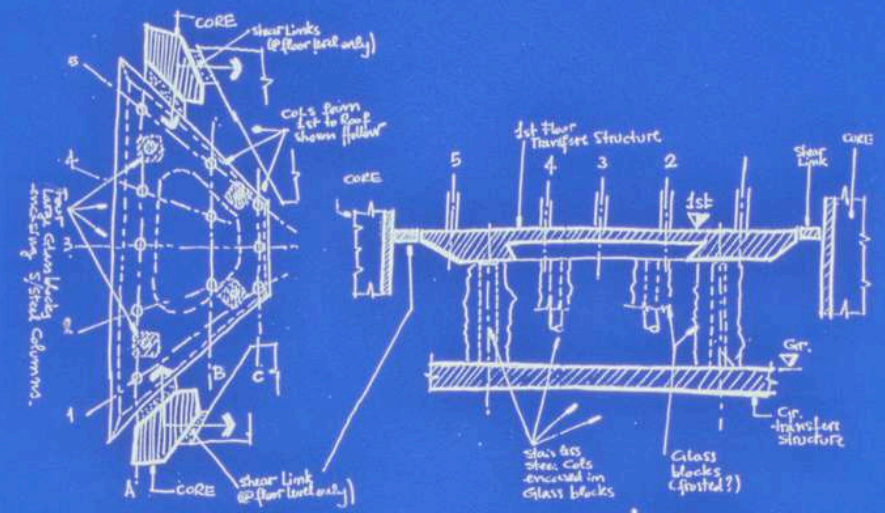 CORE
shear Links
(@floor level only)
5
Cols from
1st to Roof
shown hollow
4
Four
large Glass blocks
encasing S/Steel Columns.
3
2
1
B
C
A
CORE
shear Link
(@floor level only)
1st Floor
Transfer Structure
CORE
5
4
3
2
1st
Shear
Link
CORE
Gr.
Gr.
transfer
structure
Stainless
Steel Cols
encased in
Glass blocks
Glass
blocks
(frosted?)